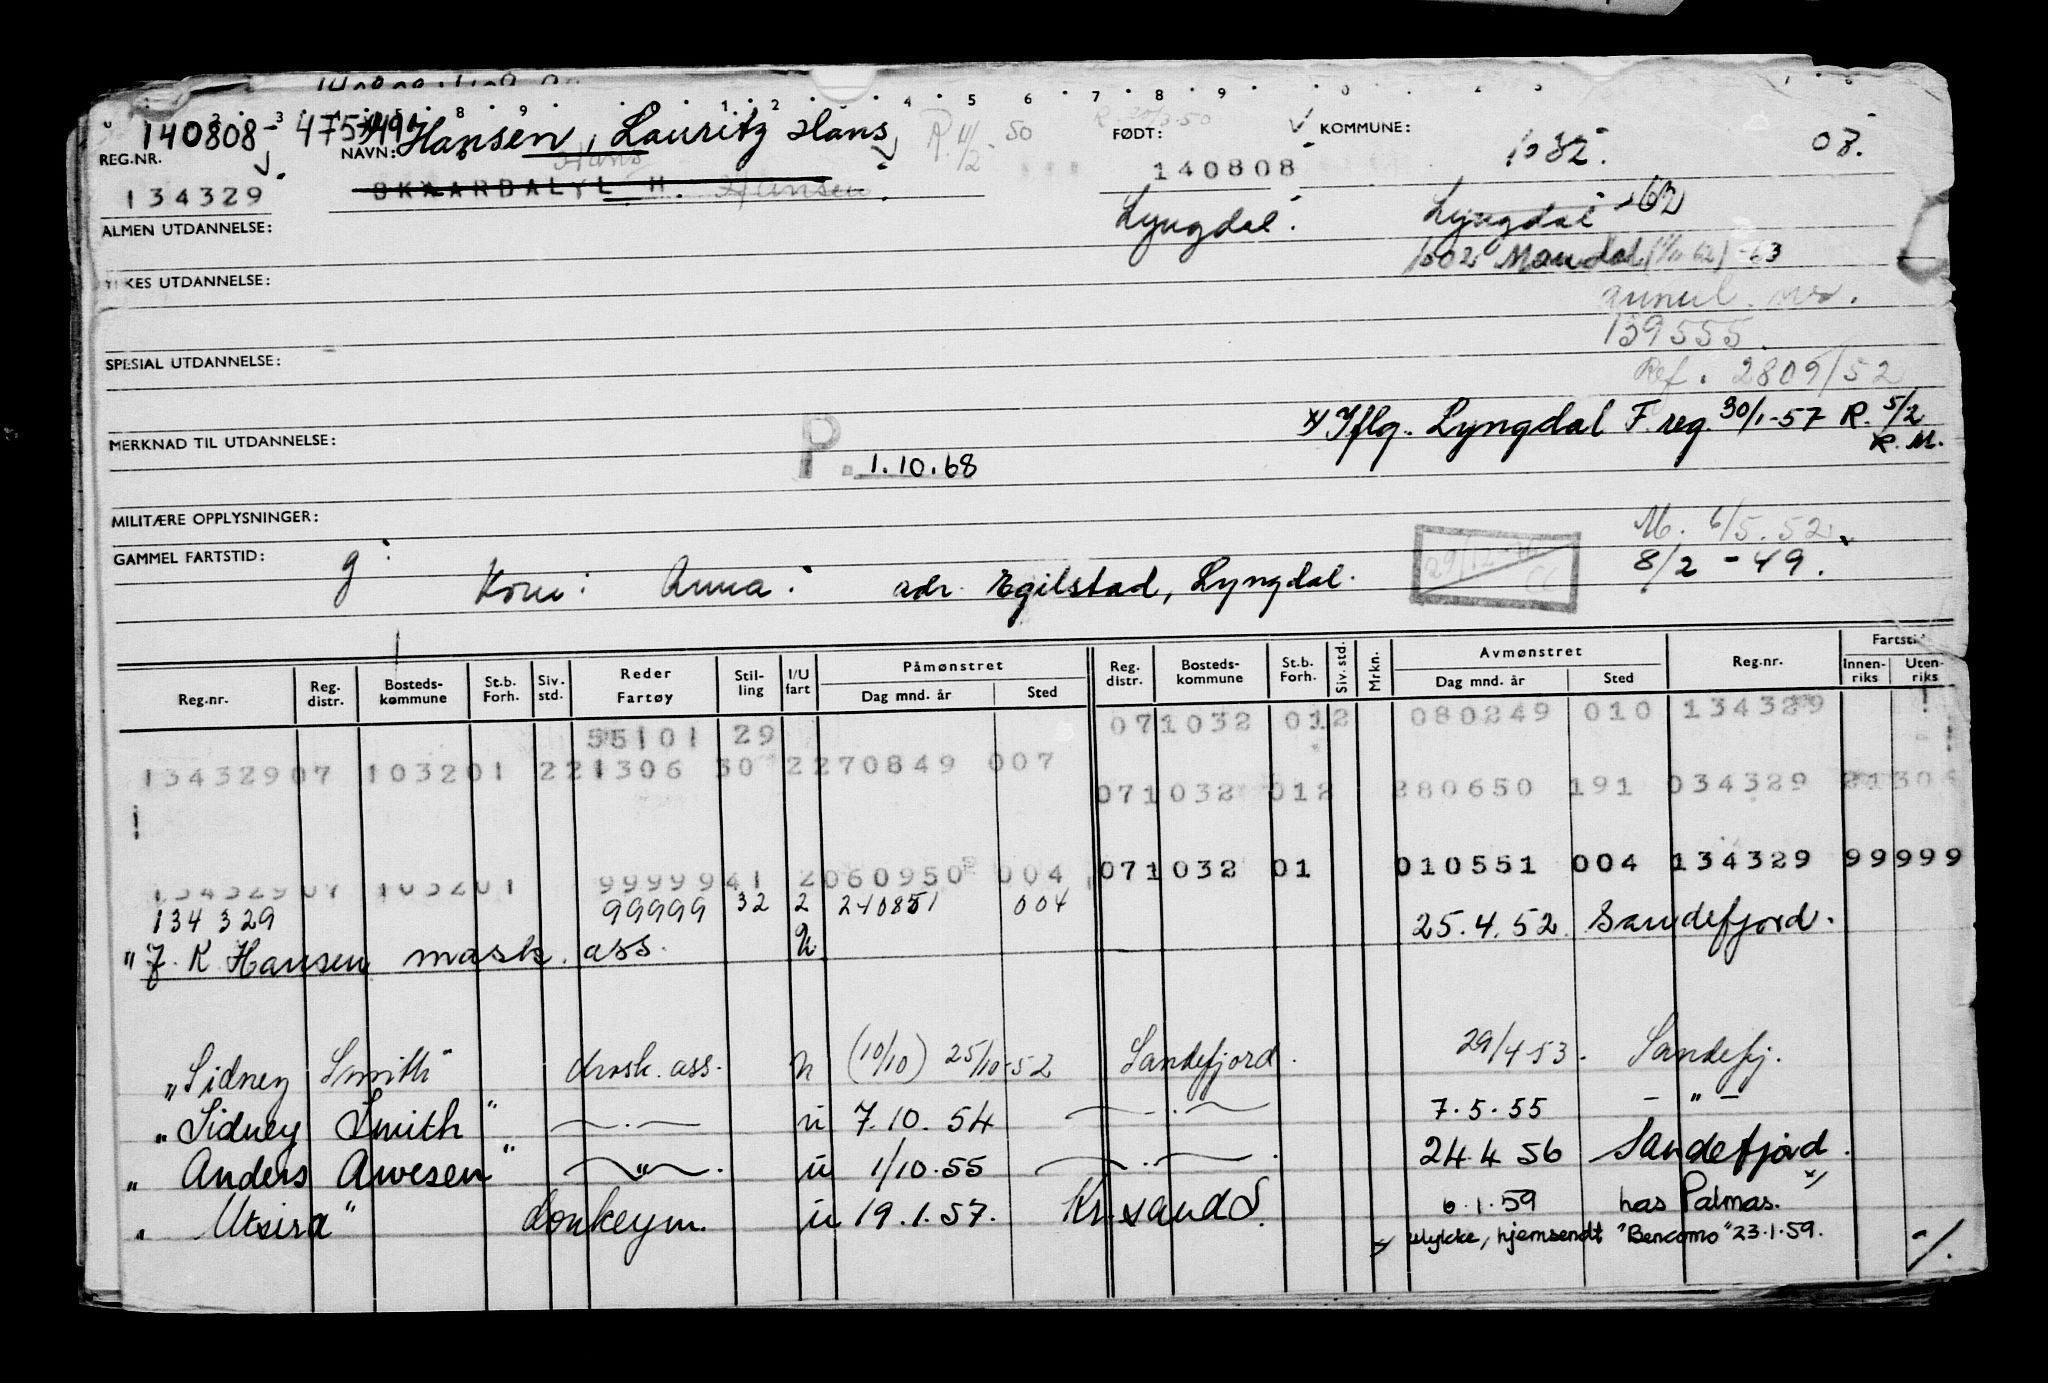 140808-47549 Hansen, Lauritz Hans R. 11/2 50 R. 20/3-50 FØDT: KOMMUNE: 1032. 08.
REG.NR. NAVN: Hans 140808
134329 SKAARDAL, L H. Hansen.
ALMEN UTDANNELSE: Lyngdal. Lyngdal -62
1002 Mandal -63
YRKES UTDANNELSE:
annul. nr.
139555
SPESIAL UTDANNELSE: Ref. 2809/52
x) Iflg. Lyngdal F.reg. 30/1-57 R. 5/2
MERKNAD TIL UTDANNELSE: R.M.
P. 1.10.68
MILITÆRE OPPLYSNINGER: M. 6/5.52.
GAMMEL FARTSTID: g 8/2-49.
Kone: Anna. adr. Egilstad, Lyngdal.
Reg.nr. Reg. distr. Bosteds- kommune St.b. Forh. Siv. std. Reder Fartøy Stil- ling I/U fart Påmønstret Dag mnd. år Sted Reg. distr. Bosteds- kommune St.b. Forh. Siv. std. Mrkn. Avmønstret Dag mnd. år Sted Reg.nr. Fartstid Innen- riks Uten- riks
55101 29 071032 012 080249 010 134329
13432907 103201 221306 30 2270849 007
071032 012 280650 191 034329
13432907 103201 9999941 2060950 004 071032 01 010551 004 134329 99999
134 329 99999 32 2 210851 004 25.4.52 Sandefjord.
" J. K Hansen mask. ass.
"Sidney Smith" dnsk. ass. u (10/10) 25/10-52 Sandefjord. 29/4-53. Sandefj.
"Sidney Smith" — . — u 7.10.54 — . — 7.5.55 — " —
" Anders Arvesen" — " — . u 1/10.55 — . — 24.4 56 Sandefjord.
" Utsira" donkeym. u 19.1.57. Kr.sand S. 6.1.59 Las Palmas. x)
x) ulykke, hjemsendt "Bencomo" 23.1.59. -/.